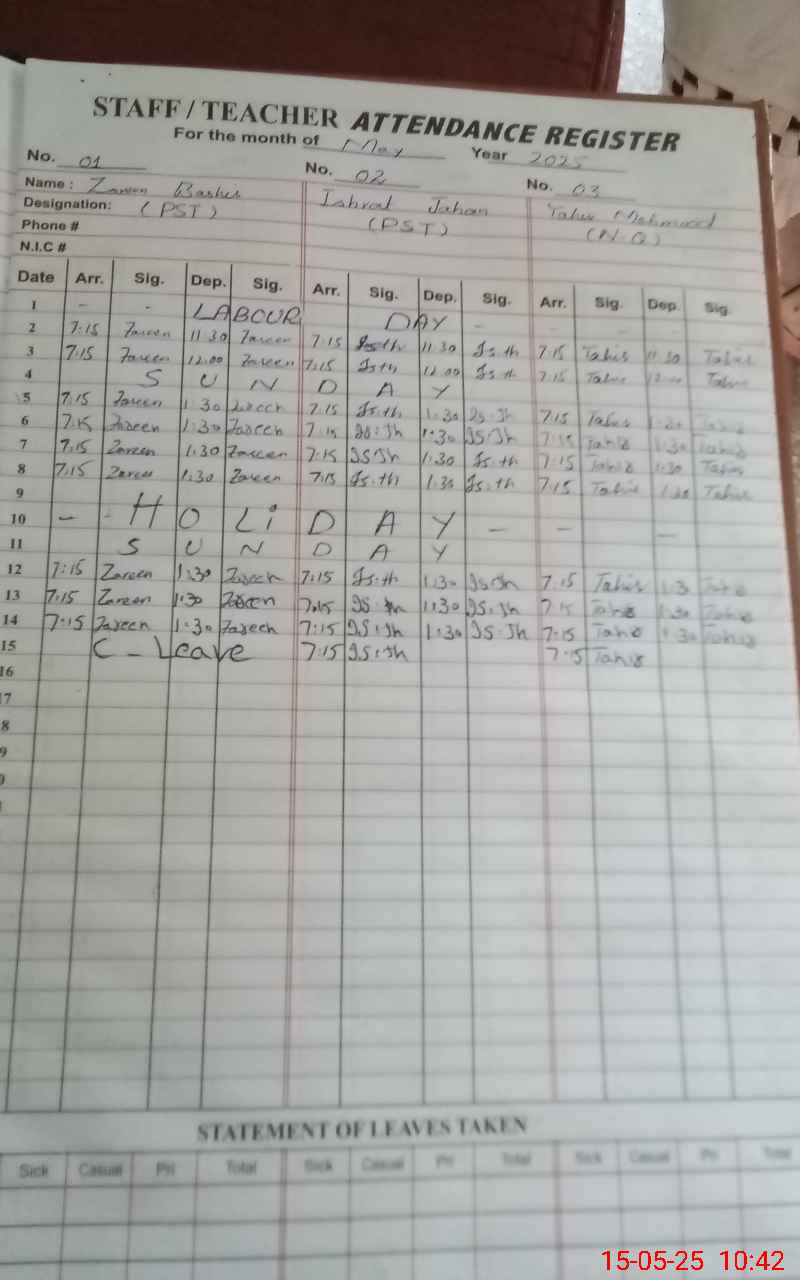 STAFF / TEACHER ATTENDANCE REGISTER
For the month of May Year 2025
No. 01 No. 02 No. 03
Name : Zareen Bashir Ishrat Jahan Tahir Mehmood
Designation: (PST) (PST) (N.Q)
Phone #
N.I.C #
Date Arr. Sig. Dep. Sig. Arr. Sig. Dep. Sig. Arr. Sig. Dep. Sig.
1 - - LABOUR DAY -
2 7:15 Zareen 11 30 Zareen 7:15 Is th 11 30 Is.th 7:15 Tahir 11 30 Tahir
3 7:15 Zareen 12.00 Zareen 7:15 Is th 12 00 Is.th 7:15 Tahir Tahir
4 S U N D A Y
5 7:15 Zareen 1 30 Zareen 7:15 Is.th 1:30 Is.th 7:15 Tahir
6 7:15 Zareen 1:30 Zareen 7:15 Is:th 1:30 Is th 7:15 Tahir 1:30 Tahir
7 7:15 Zareen 1:30 Zareen 7:15 Is th 1:30 Is.th 7:15 Tahir 1:30 Tahir
8 7:15 Zareen 1:30 Zareen 7:15 Is.th 1:30 Is.th 7:15 Tahir 1:30 Tahir
9
10 - - H O L i D A Y - - -
11 S U N D A Y
12 7:15 Zareen 1:30 Zareen 7:15 Is:th 1:30 Is th 7:15 Tahir 1:3 Tahir
13 7:15 Zareen 1:30 Zareen 7:15 Is:th 1:30 Is:th 7:15 Tahir 1:30 Tahir
14 7:15 Zareen 1:30 Zareen 7:15 Is:th 1:30 Is:th 7:15 Tahir 1:30 Tahir
15 C - Leave 7:15 Is:th 7:15 Tahir
16
7
8
9
STATEMENT OF LEAVES TAKEN
Sick Casual Pri Total Sick Casual Pri Total Sick Casual Pri Total
15-05-25 10:42